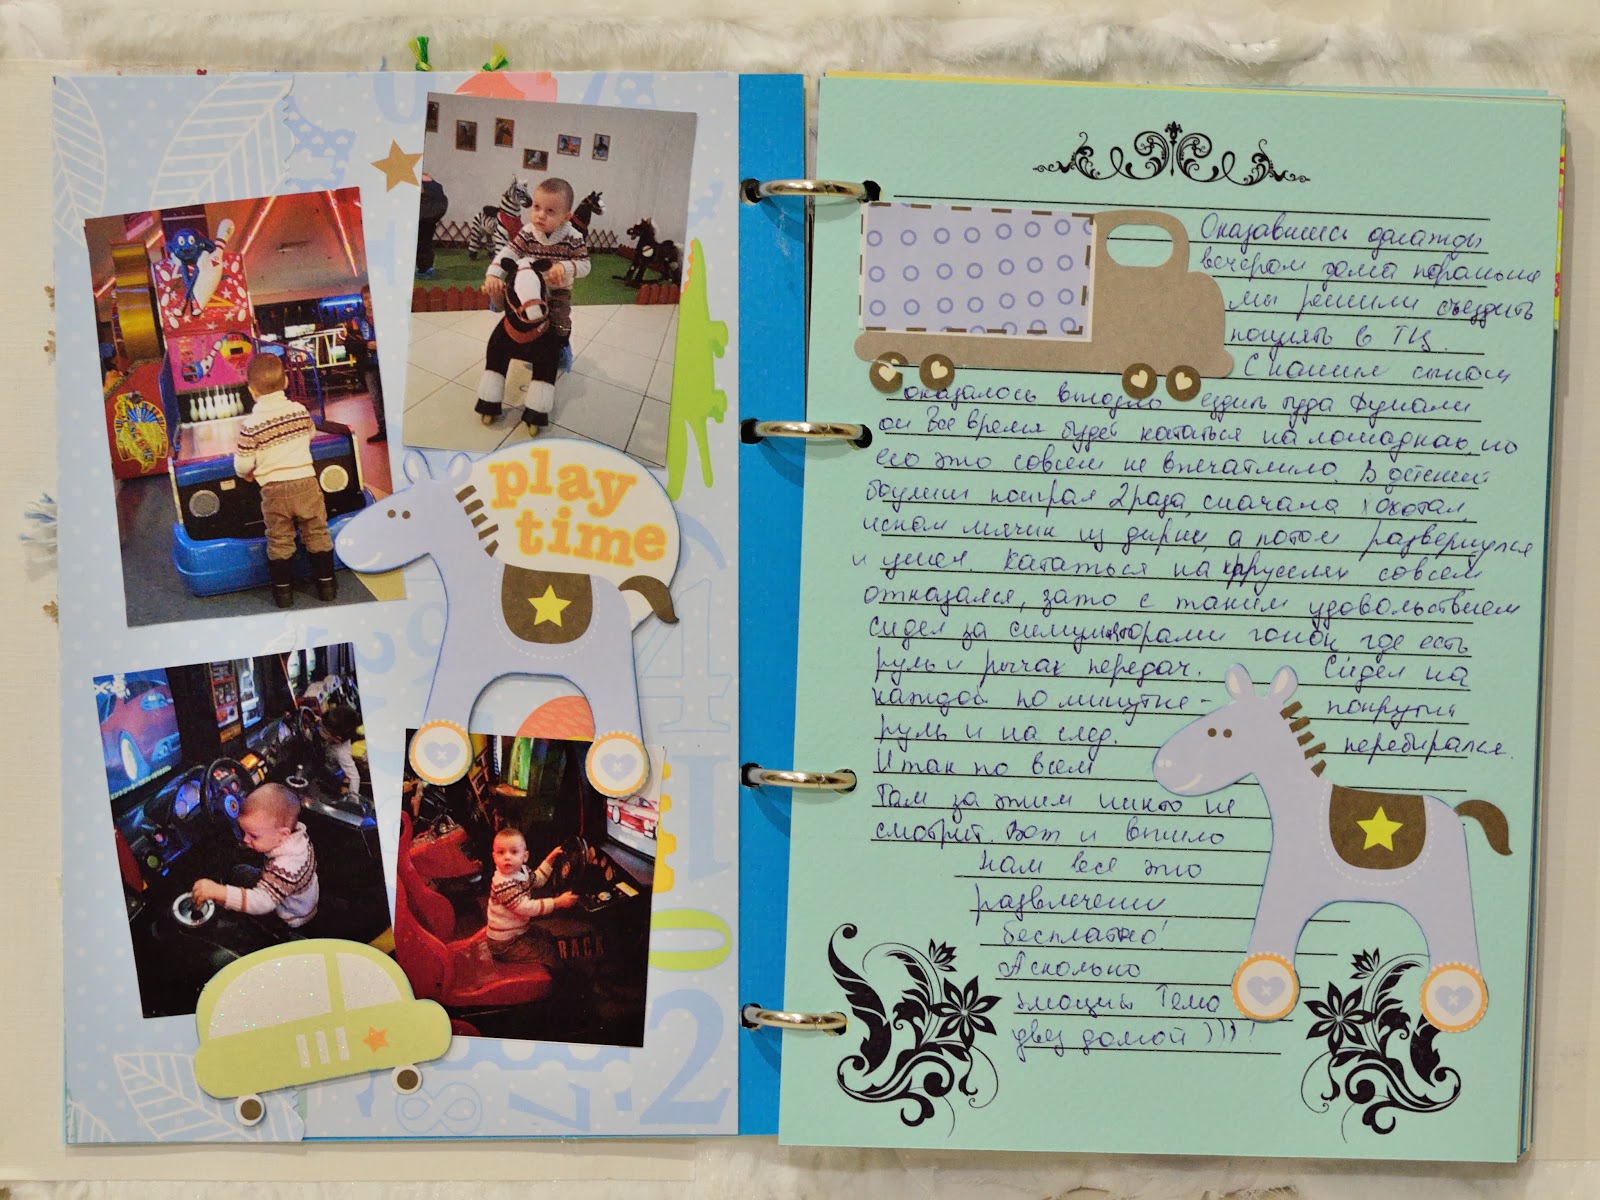 play
time
RACE
Оказавшись однажды
вечером дома пораньше
мы решили съездить
погулять в ТЦ.
С нашим сыном
оказалось выгодно ездить туда думали
он все время будет кататься на лошадках, но
его это совсем не впечатлило. В детский
боулинг поиграл 2 раза, сначала хохотал,
искал мячик из дырки, а потом развернулся
и ушел. Кататься на каруселях совсем
отказался, зато с таким удовольствием
сидел за симуляторами гонок где есть
руль и рычаг передач. Сидел на
каждой по минутке - покрутит
руль и на след. перебирался.
И так по всем
Там за этим никто не
смотрит. Вот и вышло
нам все это
развлечение
бесплатно!
А сколько
эмоций Тема
увез домой )))!